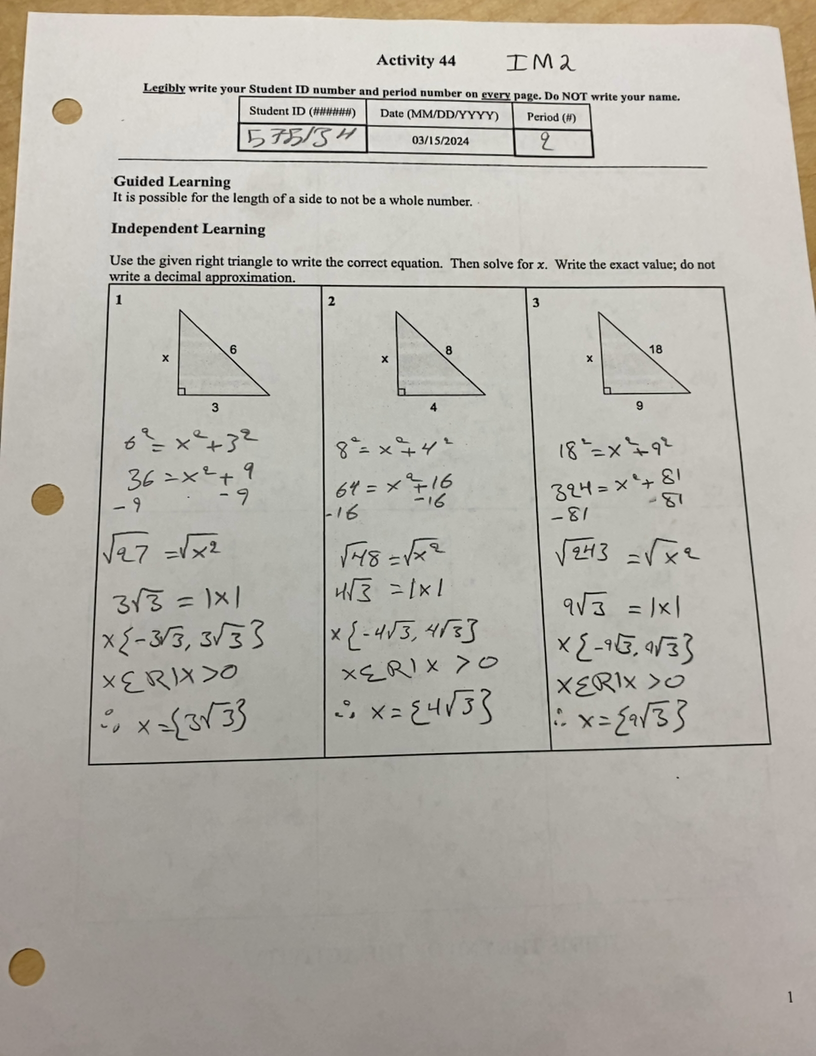 Activity 44 IM2
Legibly write your Student ID number and period number on every page. Do NOT write your name.
Student ID (######) Date (MM/DD/YYYY) Period (#)
575134 03/15/2024 2
Guided Learning
It is possible for the length of a side to not be a whole number.
Independent Learning
Use the given right triangle to write the correct equation. Then solve for x. Write the exact value; do not
write a decimal approximation.
1
x
6
3
6² = x² + 3²
36 = x² + 9
-9 -9
√27 = √x²
3√3 = |x|
x{-3√3, 3√3}
xƐℝ|x>0
∴ x={3√3}
2
x
8
4
8² = x² + 4²
64 = x² + 16
-16 -16
√48 = √x²
4√3 = |x|
x{-4√3, 4√3}
xƐℝ|x >0
∴ x={4√3}
3
x
18
9
18² = x² + 9²
324 = x² + 81
-81 -81
√243 = √x²
9√3 = |x|
x{-9√3, 9√3}
xƐℝ|x >0
∴ x={9√3}
1